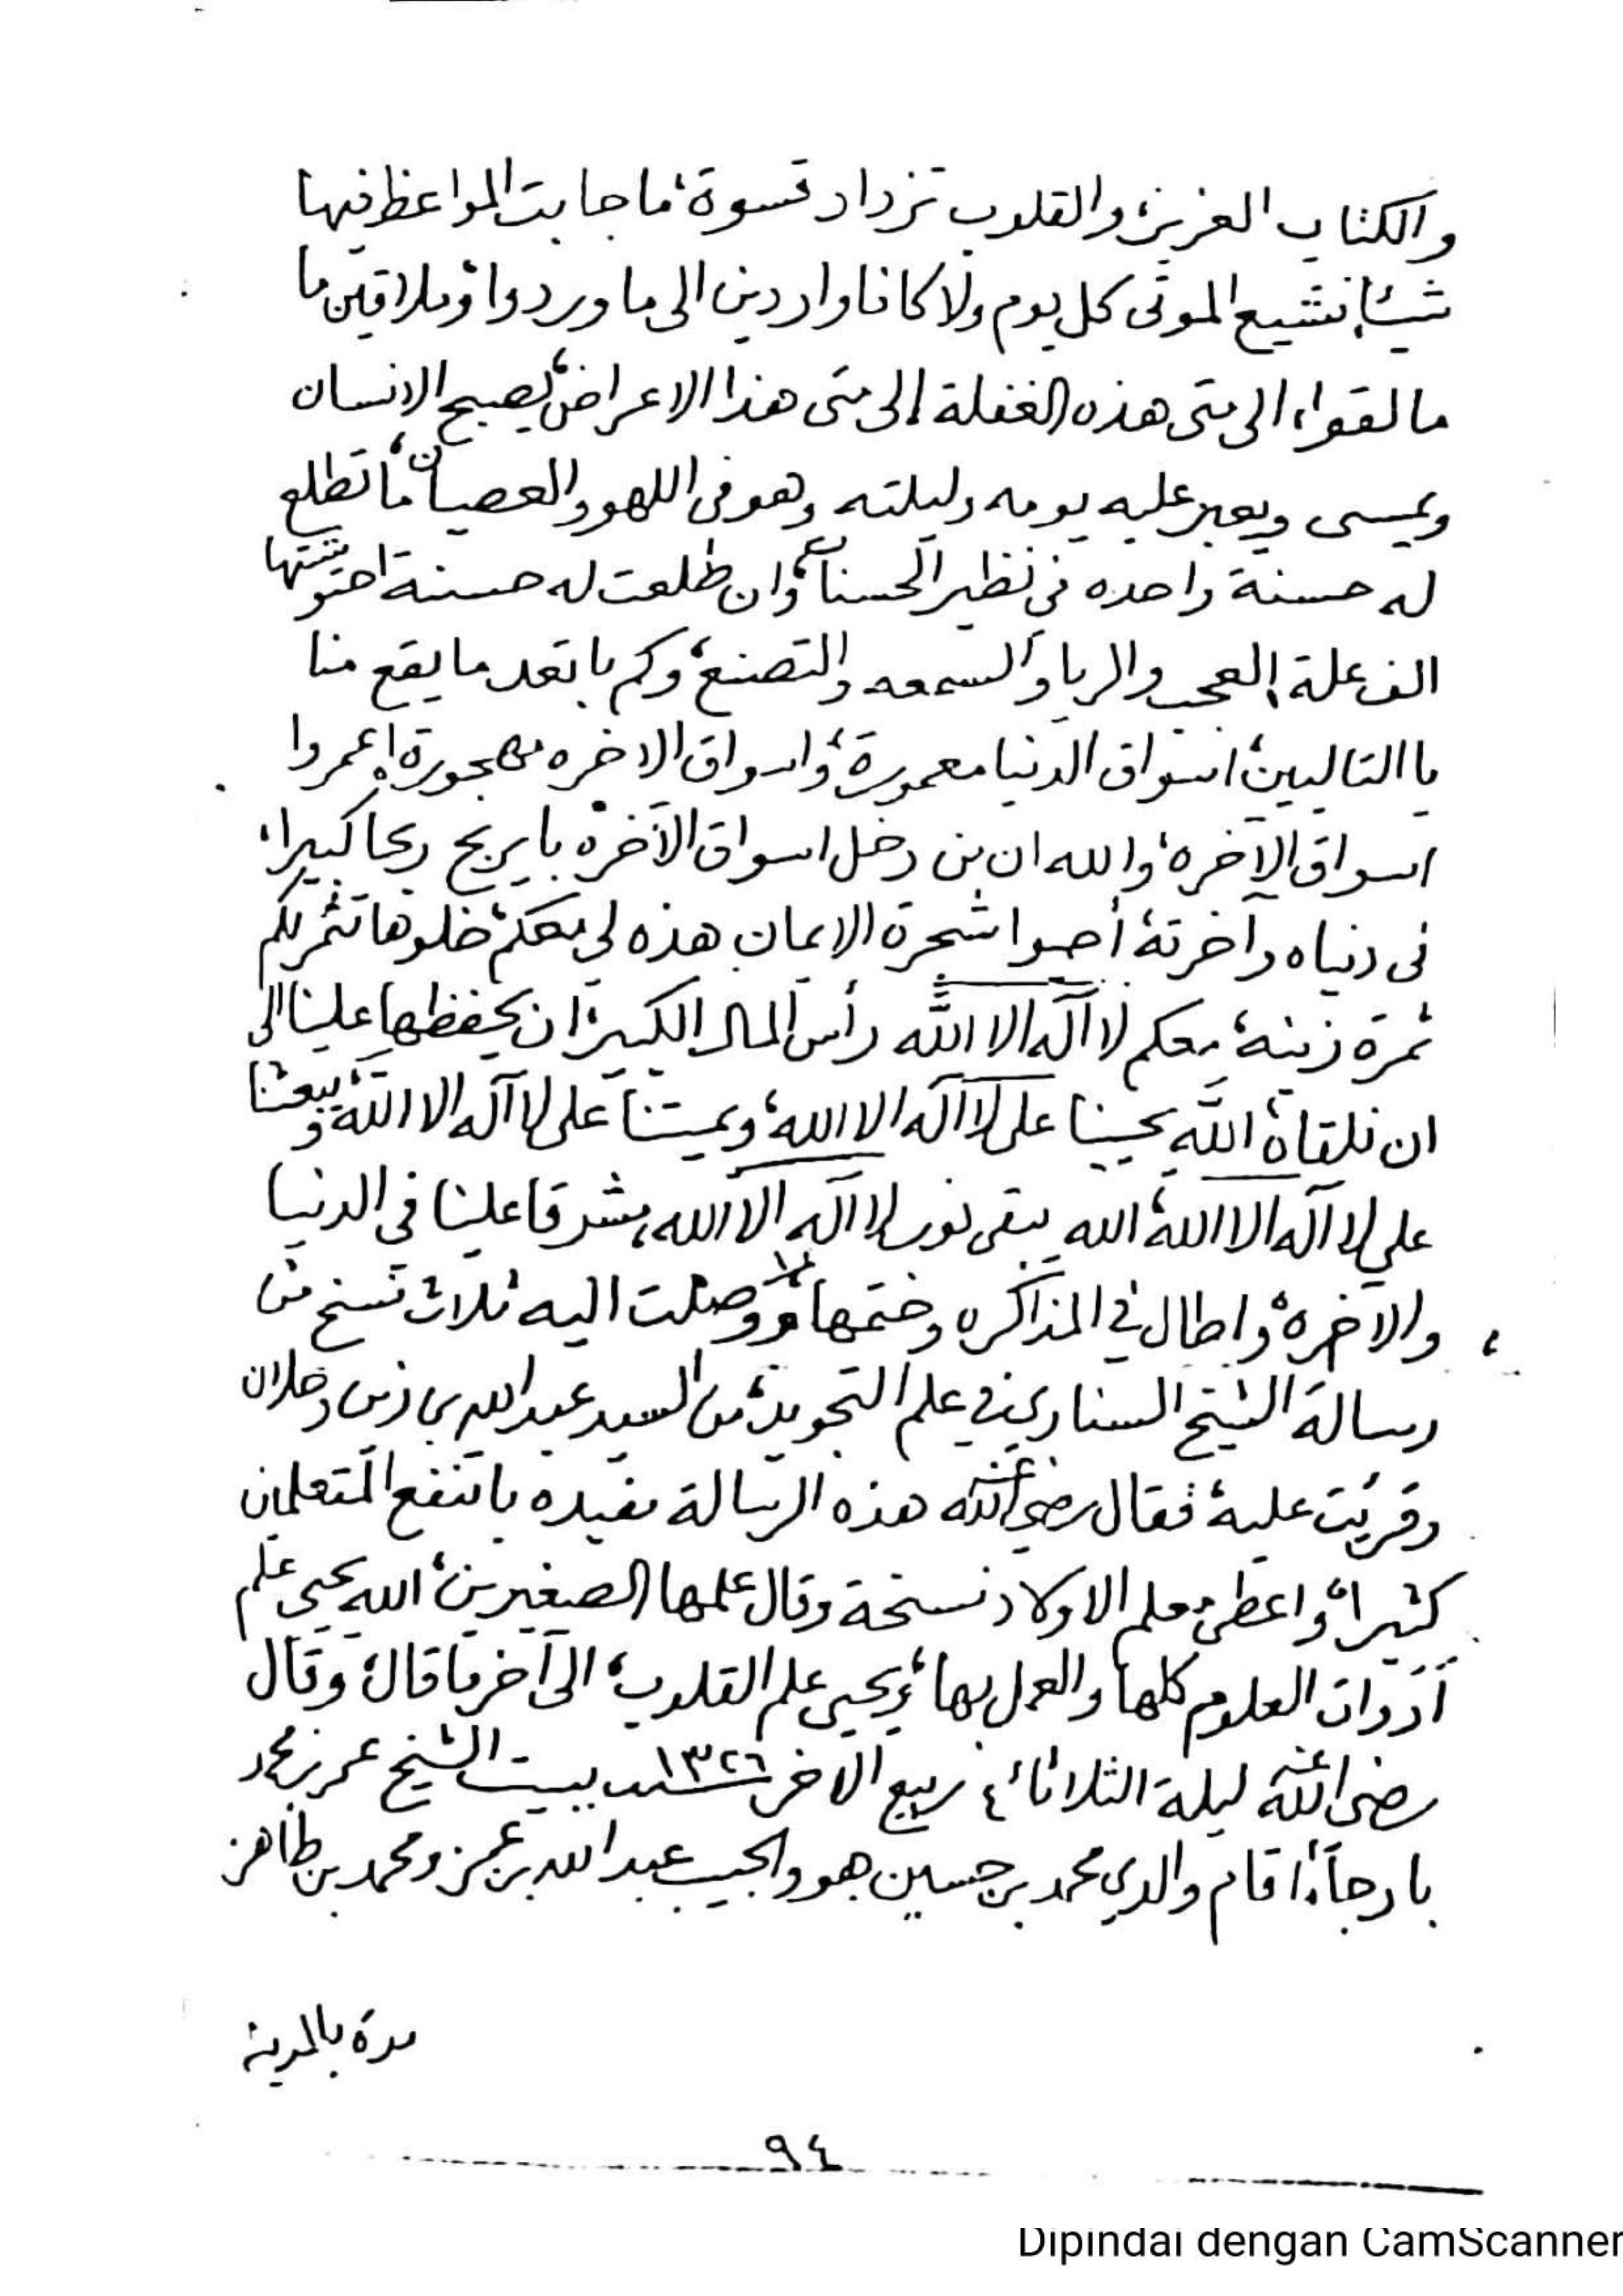 والكتاب العزيز، والقلوب تزداد قسوة، ما جابت المواعظ فيها
شيئا، نشيع الموتى كل يوم ولا كانا واردين الى ما وردوا، وملاقين ما
ما لقوا، الى متى هذه الغفلة الى متى هذا الاعراض، يصبح الانسان
ويمسى ويعبر عليه يومه وليلته وهو فى اللهو والعصيان، ما تطلع
له حسنة واحده فى نظير الحسنات، وان طلعت له حسنة احتوشتها
الف علة، العجب والريا والسمعه والتصنع، وكم با تعد ما يقع منا
يا التاليين، اسواق الدنيا معمورة، واسواق الاخره مهجورة، اعمروا
اسواق الآخره، والله ان من دخل اسواق الآخرة با يربح ربحا كبيرا،
فى دنياه وآخرته، أحيوا شجرة الايمان هذه لى معكم، خلوها تثمر لكم
ثمرة زينه، معكم لا آله الا الله رأس المال الكبير، ان يحفظها علينا الى
ان نلقاه، الله يحيينا على لا آله الا الله، ويميتنا على لا آله الا الله، ويبعثنا
على لا آله الا الله، الله يبقى نور لا آله الا الله، مشرقا علينا فى الدنيا
والآخرة، واطال في المذاكره وختمها، ووصلت اليه ثلاث نسخ من
رسالة الشيخ السناري في علم التجويد، من السيد عبدالله بن زين دحلان
وقريت عليه، فقال رضي الله عنه هذه الرسالة مفيده با تنفع المتعلمين
كثيرا، واعطى معلم الاولاد نسخة وقال علمها الصغيرين، الله يحيى علم
أدوات العلوم كلها والعمل بها، ويحيى علم القلوب، الى آخر ما قال، وقال
رضى الله عنه ليلة الثلاثاء ٤ ربيع الآخر سنة ١٣٢٦ ببيت الشيخ عمر بن محمد
بارجاء، اقام والدي محمد بن حسين هو والحبيب عبدالله بن عمر ومحمد بن طاهر
مدة بالمدينة
٩٤
Dipindai dengan CamScanner